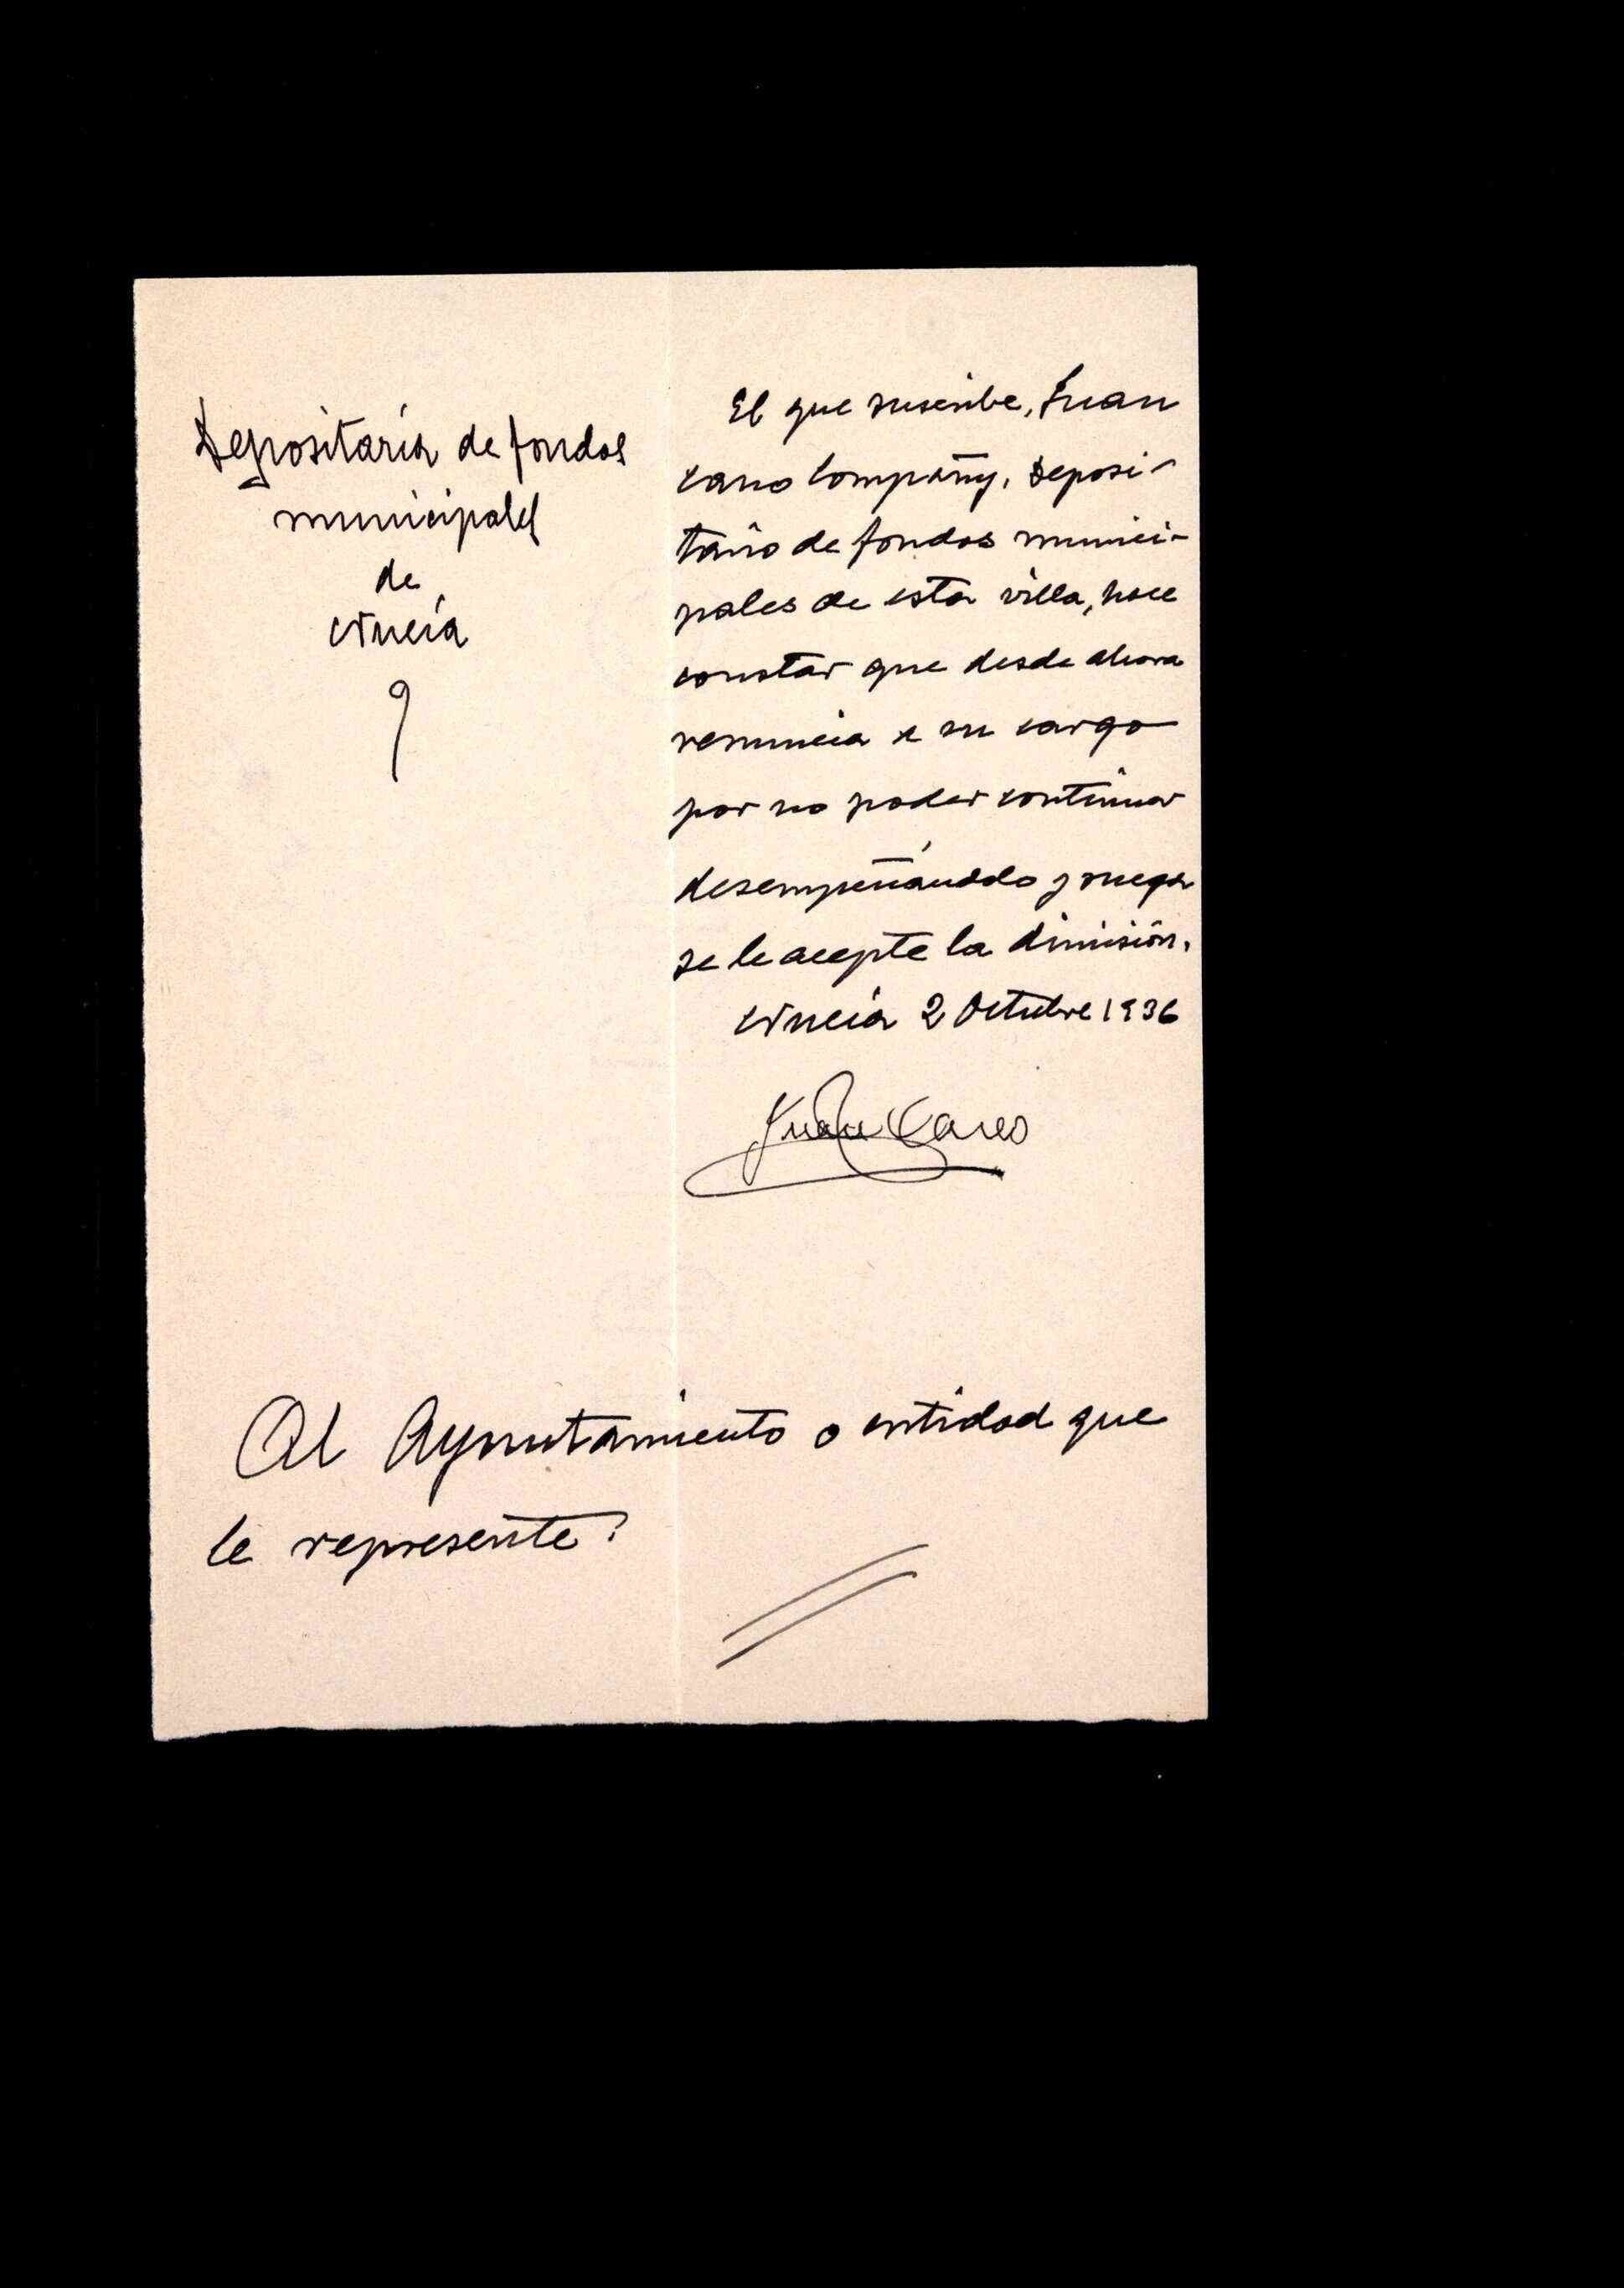 Depositaría de fondos
municipales
de
Nucía
El que suscribe, Juan
Cano Company, Deposi-
tario de fondos munici-
pales de esta villa, hace
constar que desde ahora
renuncia a su cargo
por no poder continuar
desempeñándolo y ruega
se le acepte la dimisión.
Nucía 2 Octubre 1936
Juan Cano
Al Ayuntamiento o entidad que
le represente.